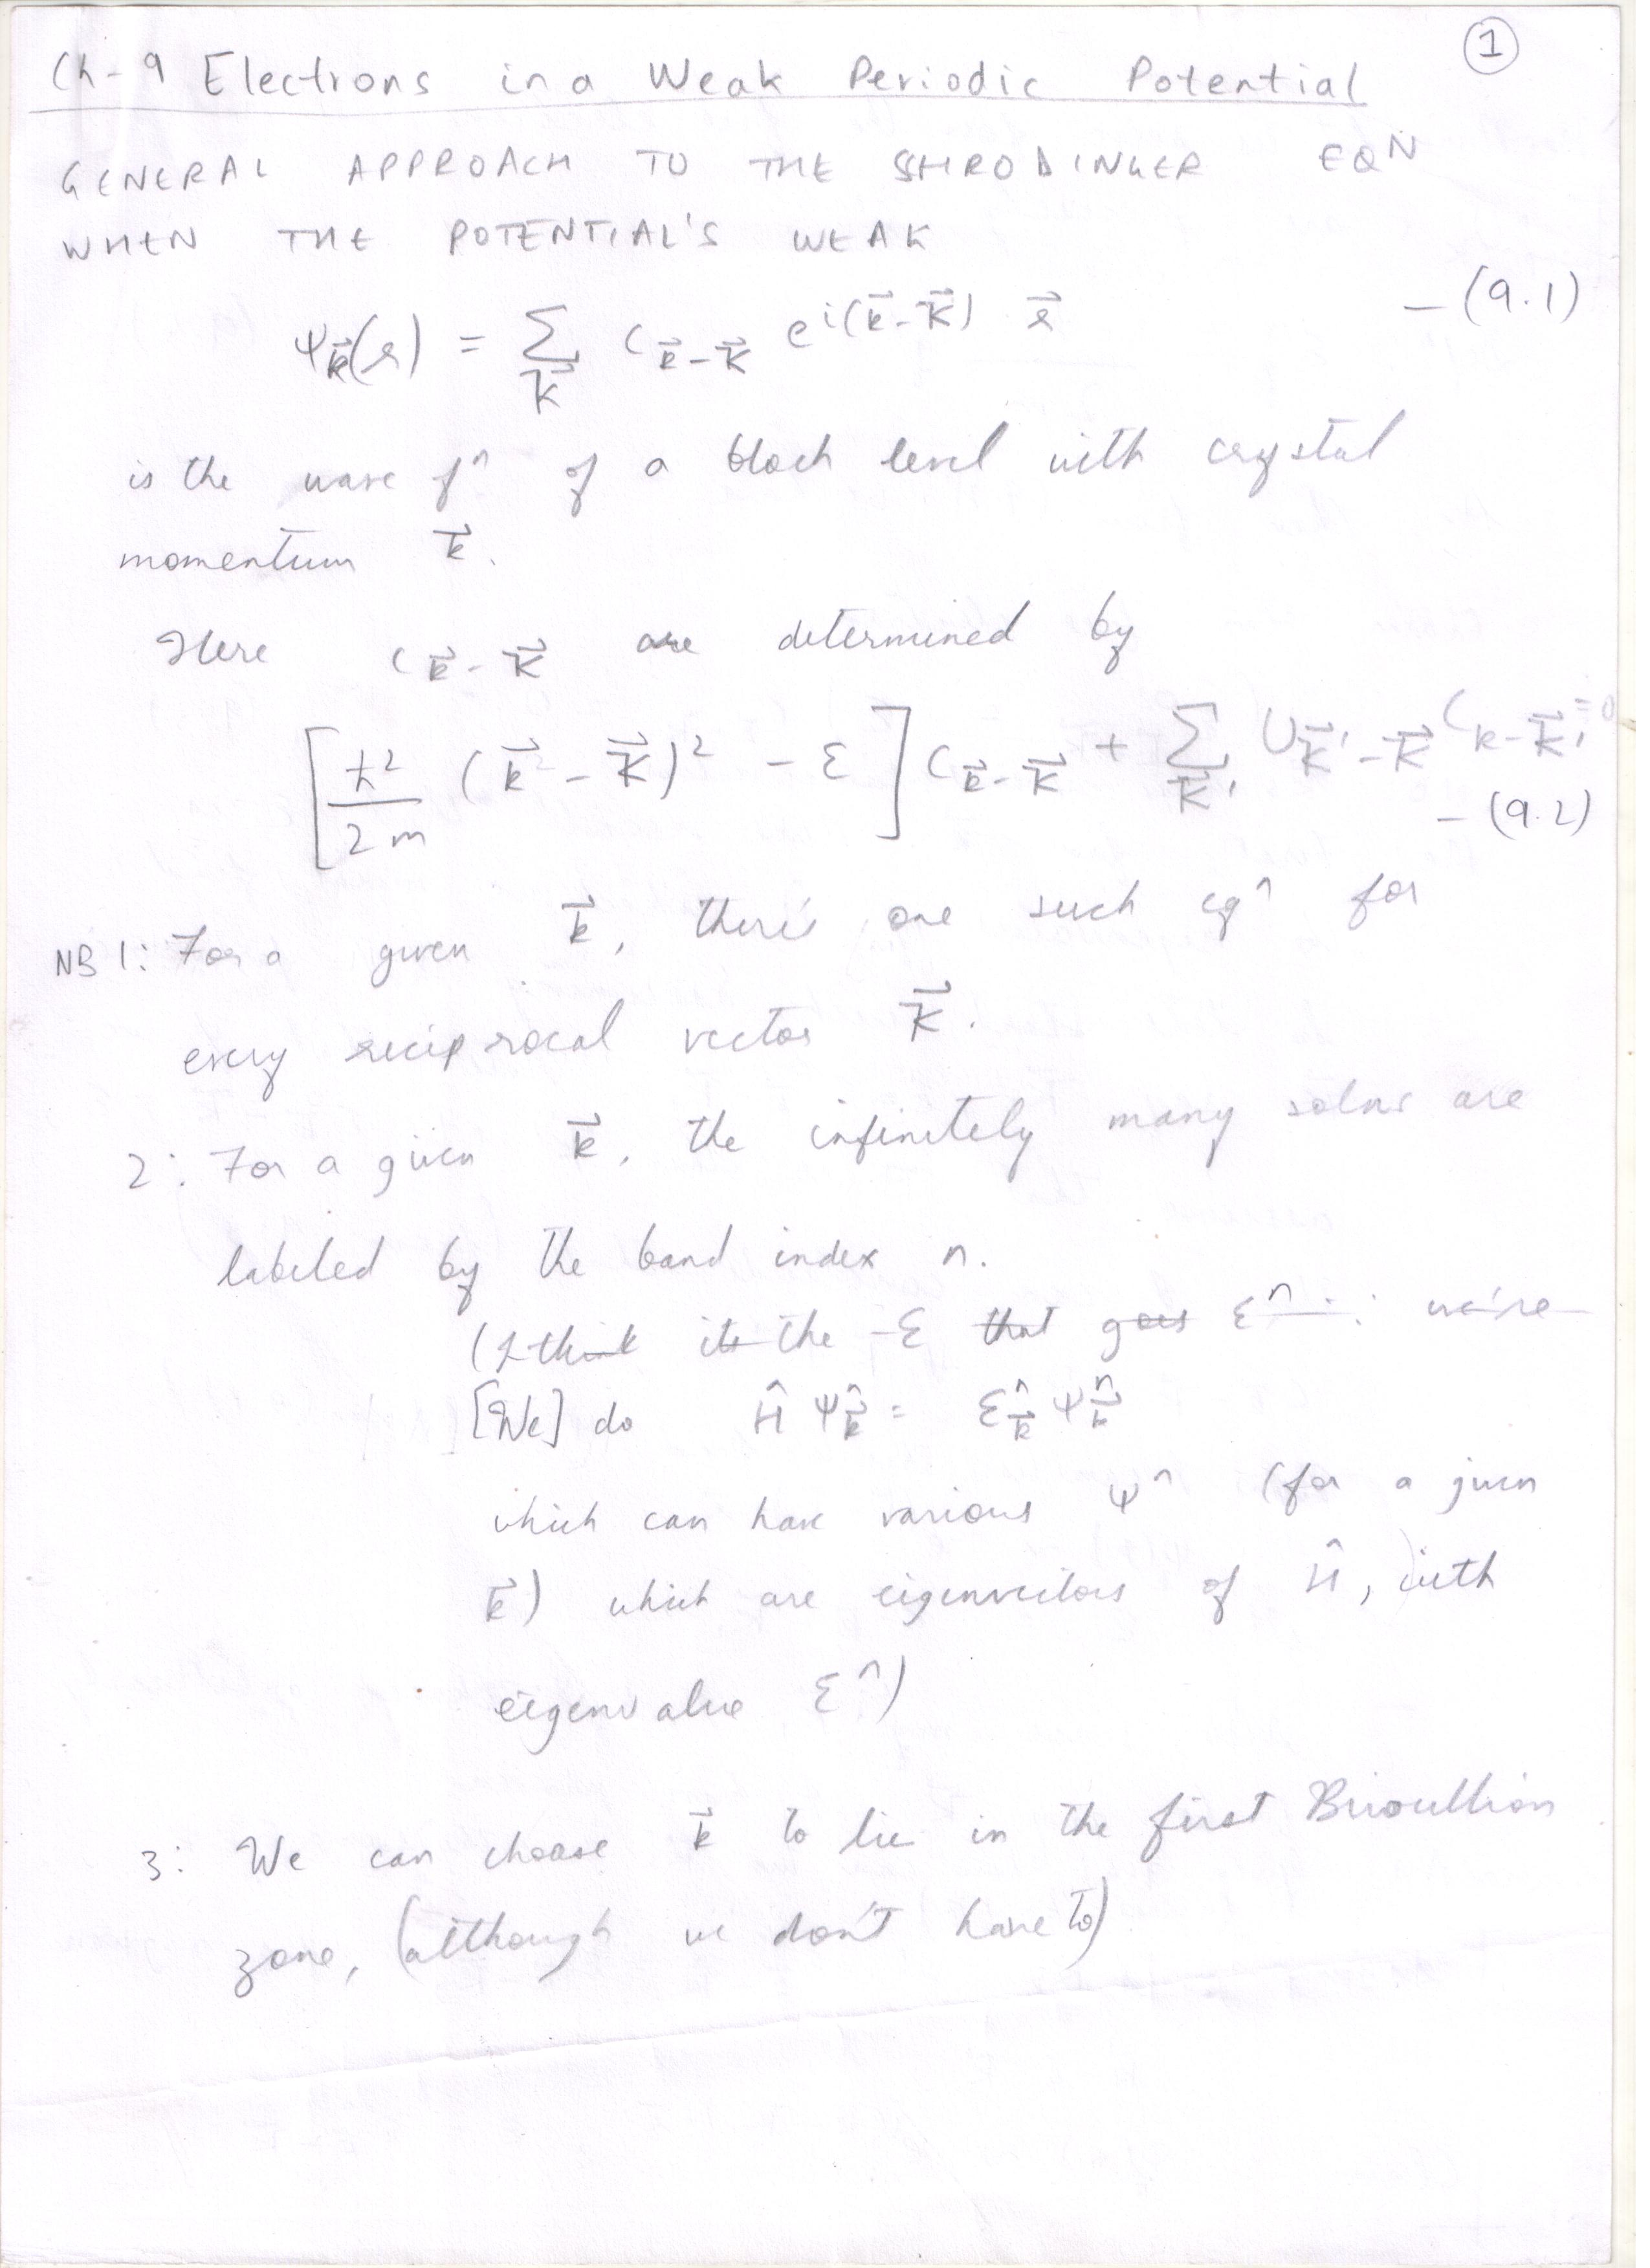 ①
Ch-9 Electrons in a Weak Periodic Potential
GENERAL APPROACH TO THE SHRODINGER EQN
WHEN THE POTENTIAL'S WEAK
ψ_{\vec{k}}(r) = Σ_{\vec{K}} C_{\vec{k}-\vec{K}} e^{i(\vec{k}-\vec{K})} \vec{r} — (9.1)
is the wave fⁿ of a bloch level with crystal
momentum \vec{k}.
Here C_{\vec{k}-\vec{K}} are determined by
[ħ²/2m (\vec{k} - \vec{K})² - ε] C_{\vec{k}-\vec{K}} + Σ_{\vec{K}'} U_{\vec{K}'-\vec{K}} C_{k-\vec{K}'} = 0
— (9.2)
NB 1: For a given \vec{k}, there's one such eqⁿ for
every reciprocal vector \vec{K}.
2: For a given \vec{k}, the infinitely many solns are
labeled by the band index n.
(I think its the -ε that goes εⁿ : we're
[We] do Ĥ ψⁿ_{\vec{k}} = εⁿ_{\vec{k}} ψⁿ_{\vec{k}}
which can have various ψⁿ (for a given
\vec{k}) which are eigenvectors of Ĥ, with
eigenvalue εⁿ)
3: We can choose \vec{k} to lie in the first Brioullion
zone, (although we don't have to)